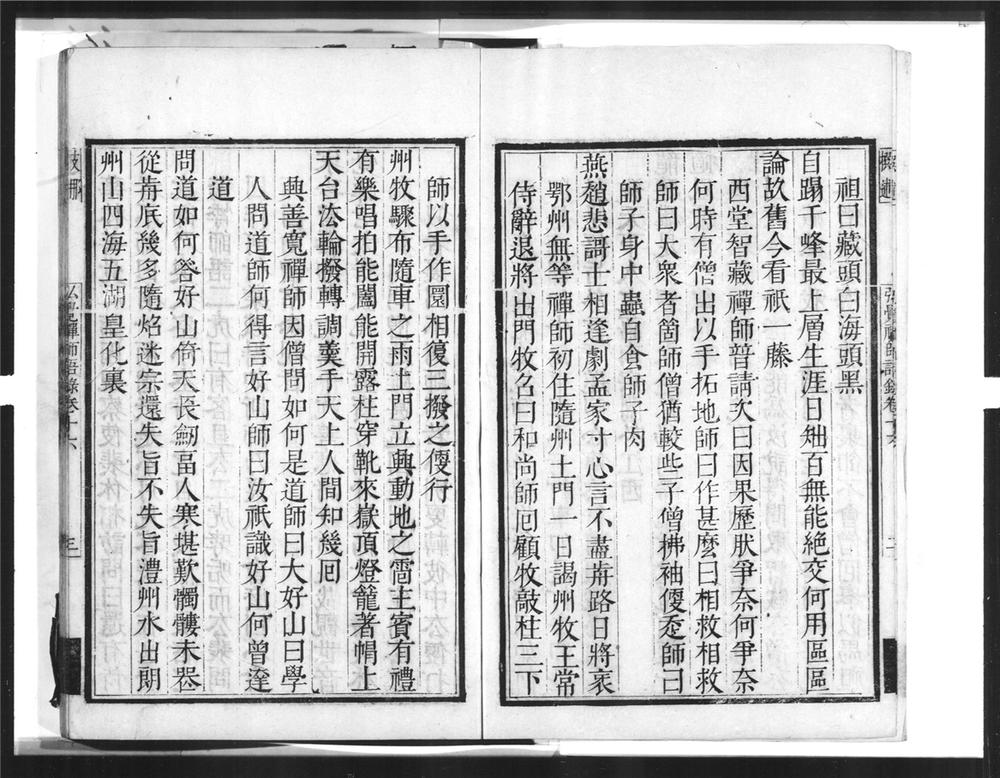 祖曰藏頭白海頭黑
自蹋千峰最上層生涯日拙百無能絶交何用區區
論故舊今看祇一藤
西堂智藏禪師普請次曰因果歷狀爭奈何爭奈
何時有僧出以手拓地師曰作甚麼曰相救相救
師曰大衆者箇師僧猶較些子僧拂袖便走師曰
師子身中蟲自食師子肉
燕趙悲謌士相逢劇孟家寸心言不盡歬路日將衺
鄂州無等禪師初住隨州土門一日謁州牧王常
侍辭退將出門牧召曰和尚師回顧牧敲柱三下
師以手作圓相復三撥之便行
州牧驟布隨車之雨土門立興動地之雷主賓有禮
有樂唱拍能闔能開露柱穿靴來嶽頂燈籠著帽上
天台法輪撥轉調羹手天上人間知幾回
興善寬禪師因僧問如何是道師曰大好山曰學
人問道師何得言好山師曰汝祇識好山何曾達
道
問道如何答好山倚天長劒畐人寒堪歎髑髏未㤅
從歬底幾多隨焰迷宗還失旨不失旨澧州水出朗
州山四海五湖皇化裏